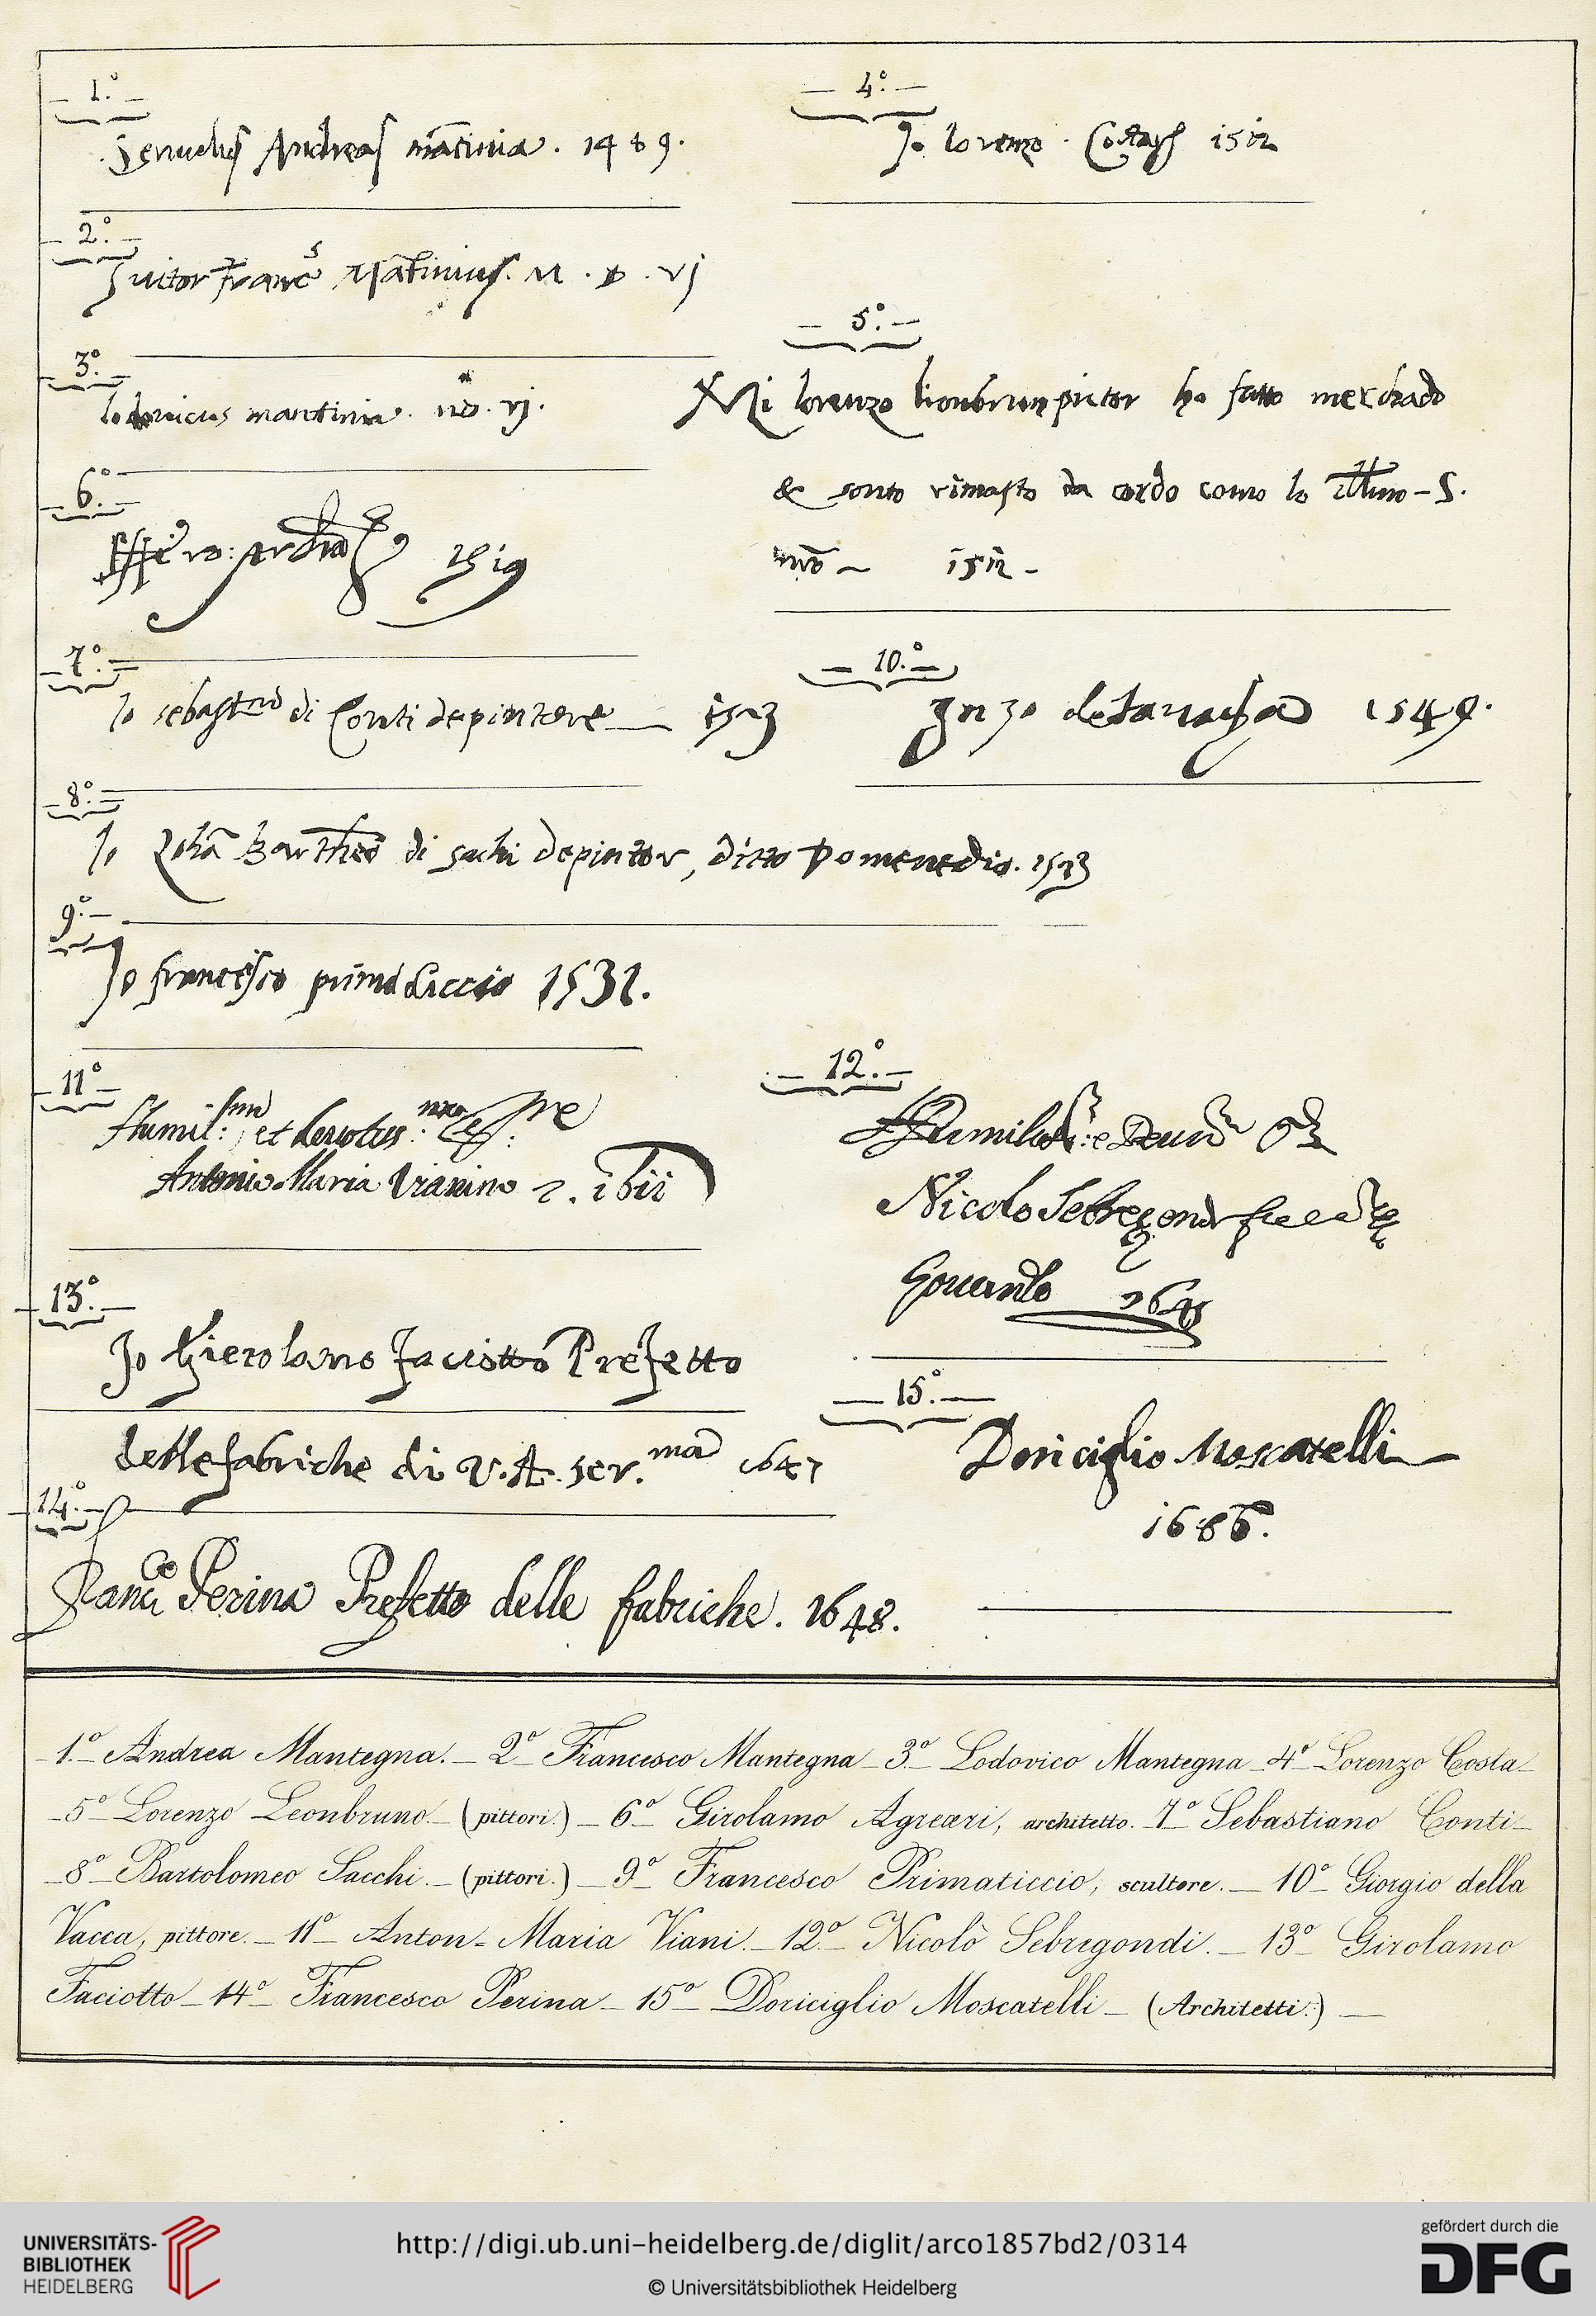 1.º
servulus Andreas mãtinia. 1489.
2.º
Servitor Franc.s Mãtinius. M. D. vj
3.º
lodovicus mantinia. MD. vj.
4.º
Jo lorenzo Costa 1512
5.º
Mi lorenzo lionbrun pictor ho fatto merchado
& sonto rimasto da cordo como lo Illmo - S.
mio ~ 1512 -
6.º
1519
7.º
Jo sebast.no di Conti depintore 1523
8.º
Jo Zohã Bartheo di sachi depintor, ditto Domenedio. 1523
9.º
Jo francesco primadiccio 1531.
10.º
1549.
11.º
Humil: et devotiss:
Antonio Maria Vianino 1611
12.º
Humiliss: e
Nicolo Sebregondi
13.º
Jo Gierolamo faciotto Prefetto
delle fabriche di V. A. ser.ma 1647
14.º
Franc.co Perina Prefetto delle fabriche. 1648.
15.º
Doriciglio Moscatelli
1686.
1.º Andrea Mantegna. – 2.º Francesco Mantegna – 3.º Lodovico Mantegna – 4.º Lorenzo Costa –
– 5.º Lorenzo Leonbruno – (pittori.) – 6.º Girolamo Agreari, architetto. 7.º Sebastiano Conti –
– 8.º Bartolomeo Sacchi. – (pittori.) – 9.º Francesco Primaticcio, scultore. – 10.º Giorgio della
Vacca, pittore. – 11.º Anton-Maria Viani. – 12.º Nicolò Sebregondi. – 13.º Girolamo
Faciotto – 14.º Francesco Perina – 15.º Doriciglio Moscatelli – (Architetti.) –
UNIVERSITÄTS-
BIBLIOTHEK
HEIDELBERG
http://digi.ub.uni-heidelberg.de/diglit/arco1857bd2/0314
© Universitätsbibliothek Heidelberg
gefördert durch die
DFG